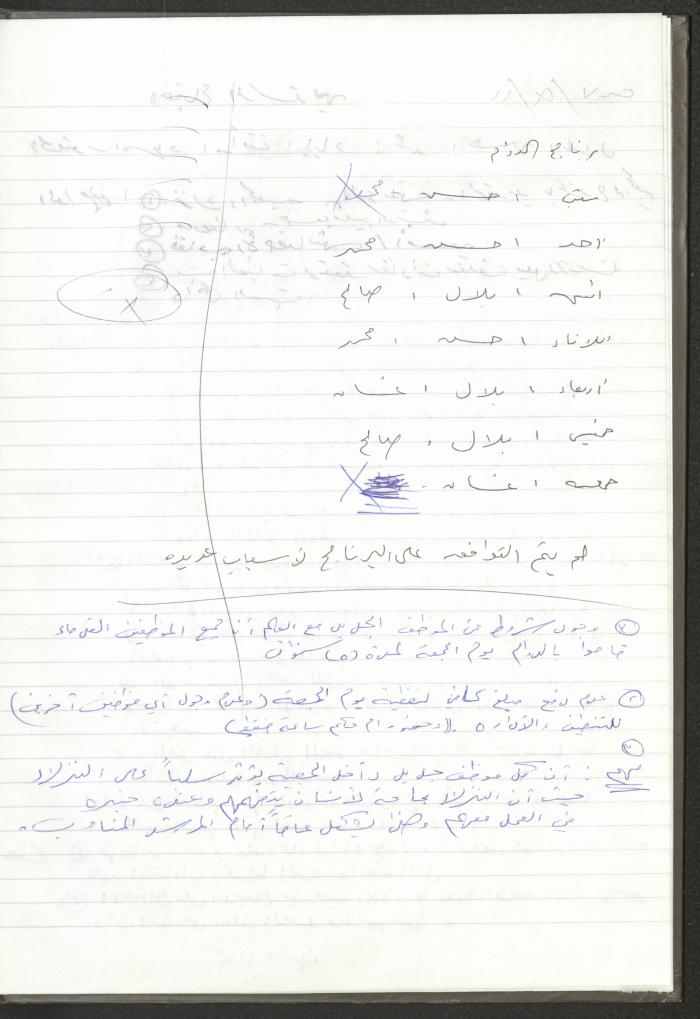 برنامج الدوام
سبت ، حسن + محمد
احد ، حسن ، محمد
اثنين ، بلال ، صالح
الثلاثاء ، حسن ، محمد
اربعاء ، بلال ، غسان
خميس ، بلال ، صالح
جمعه ، غسان -
X
لم يتم التوافقه على البرنامج لأسباب عديده
① وجود شروط من الموظف الجديد مع العلم أن جميع الموظفين القدماء
قاموا بالدوام يوم الجمعة لمدة (٥) سنوات
② عدم دفع مبلغ كافي لتغطية يوم الجمعة (وعدم وجود أي موظفين آخرين)
للتنظيف والادارة .
③
مهم : أن كل موظف جديد داخل الجمعية يؤثر سلباً على النزلاء
حيث أن النزلاء بحاجة لأنسان يتفهمهم وعنده خبره
في العمل معهم وهذا يشكل عائقاً أمام المرشد المناوب .